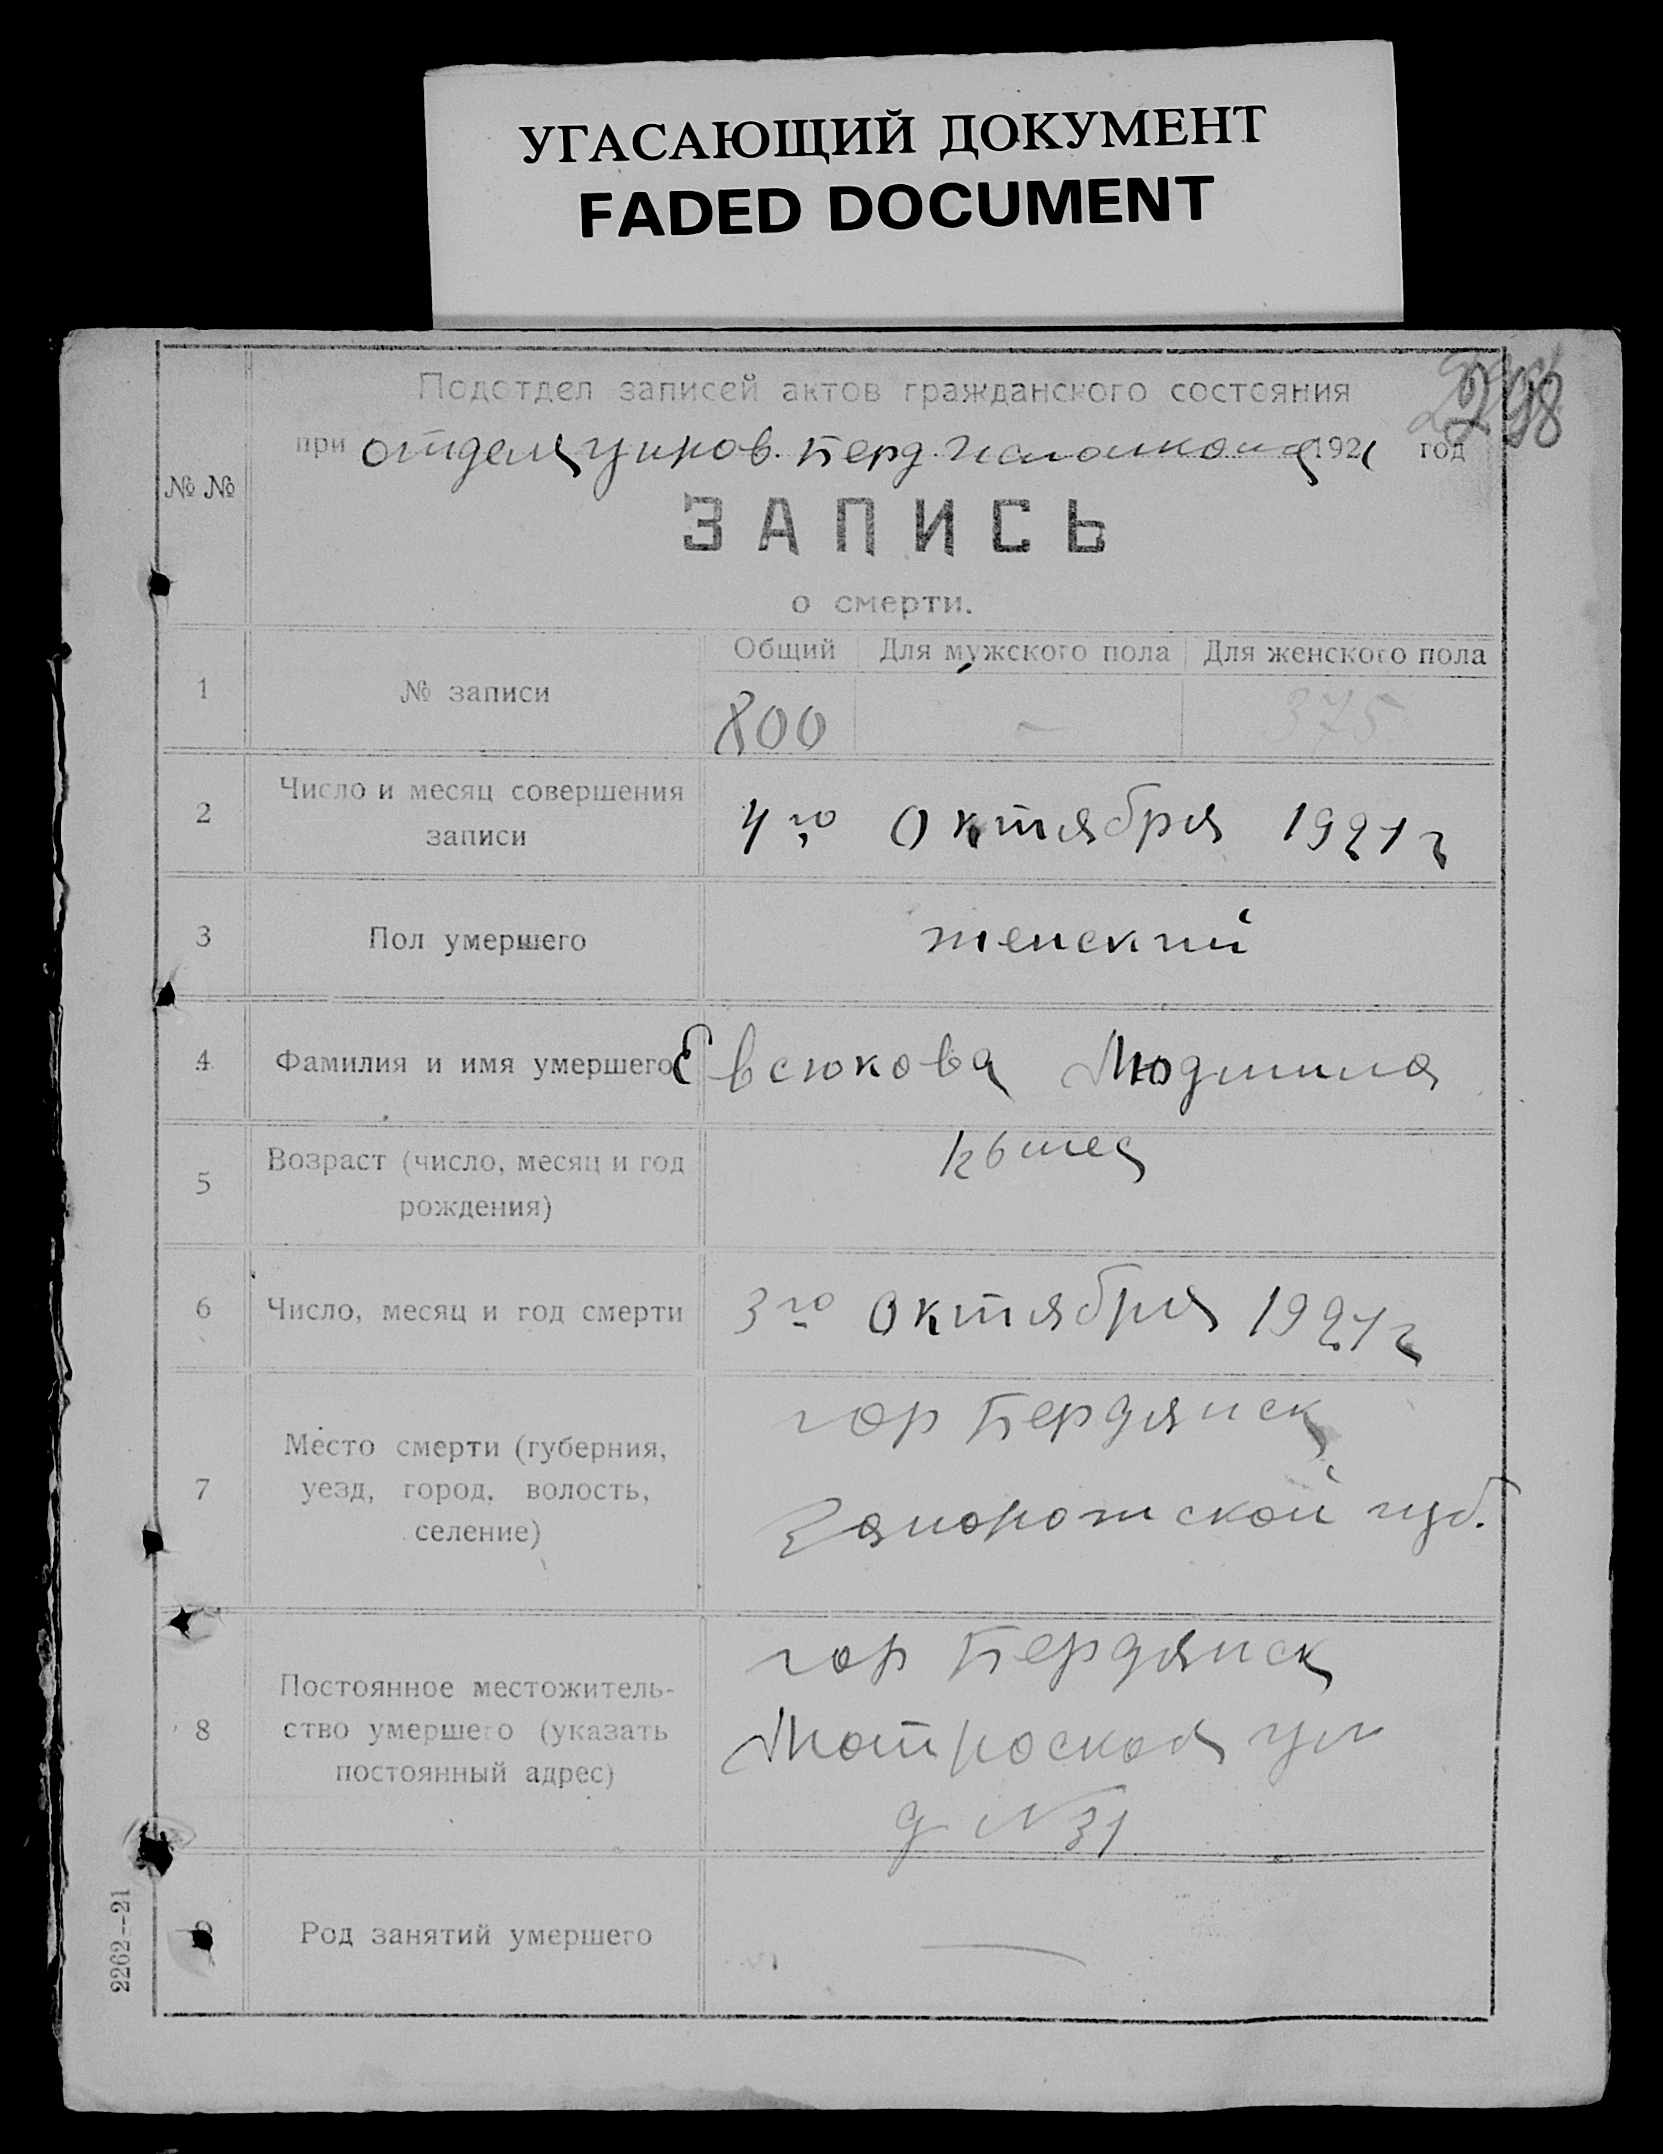 УГАСАЮЩИЙ ДОКУМЕНТ
FADED DOCUMENT
298
Подотдел записей актов гражданского состояния
при отдела управ. Берд. Исполкома 1921 год
№ №
ЗАПИСЬ
о смерти.
Общий Для мужского пола Для женского пола
1 № записи 800 — 375
2 Число и месяц совершения
записи
4го Октября 1921 г
3 Пол умершего женский
4 Фамилия и имя умершего Евсюкова Людмила
5 Возраст (число, месяц и год
рождения)
мес
6 Число, месяц и год смерти 3го Октября 1921 г
7 Место смерти (губерния,
уезд, город, волость,
селение)
гор Бердянск
Запорожской губ.
8 Постоянное местожитель-
ство умершего (указать
постоянный адрес)
гор Бердянск
Матроская ул
д N 31
9 Род занятий умершего —
2262—21